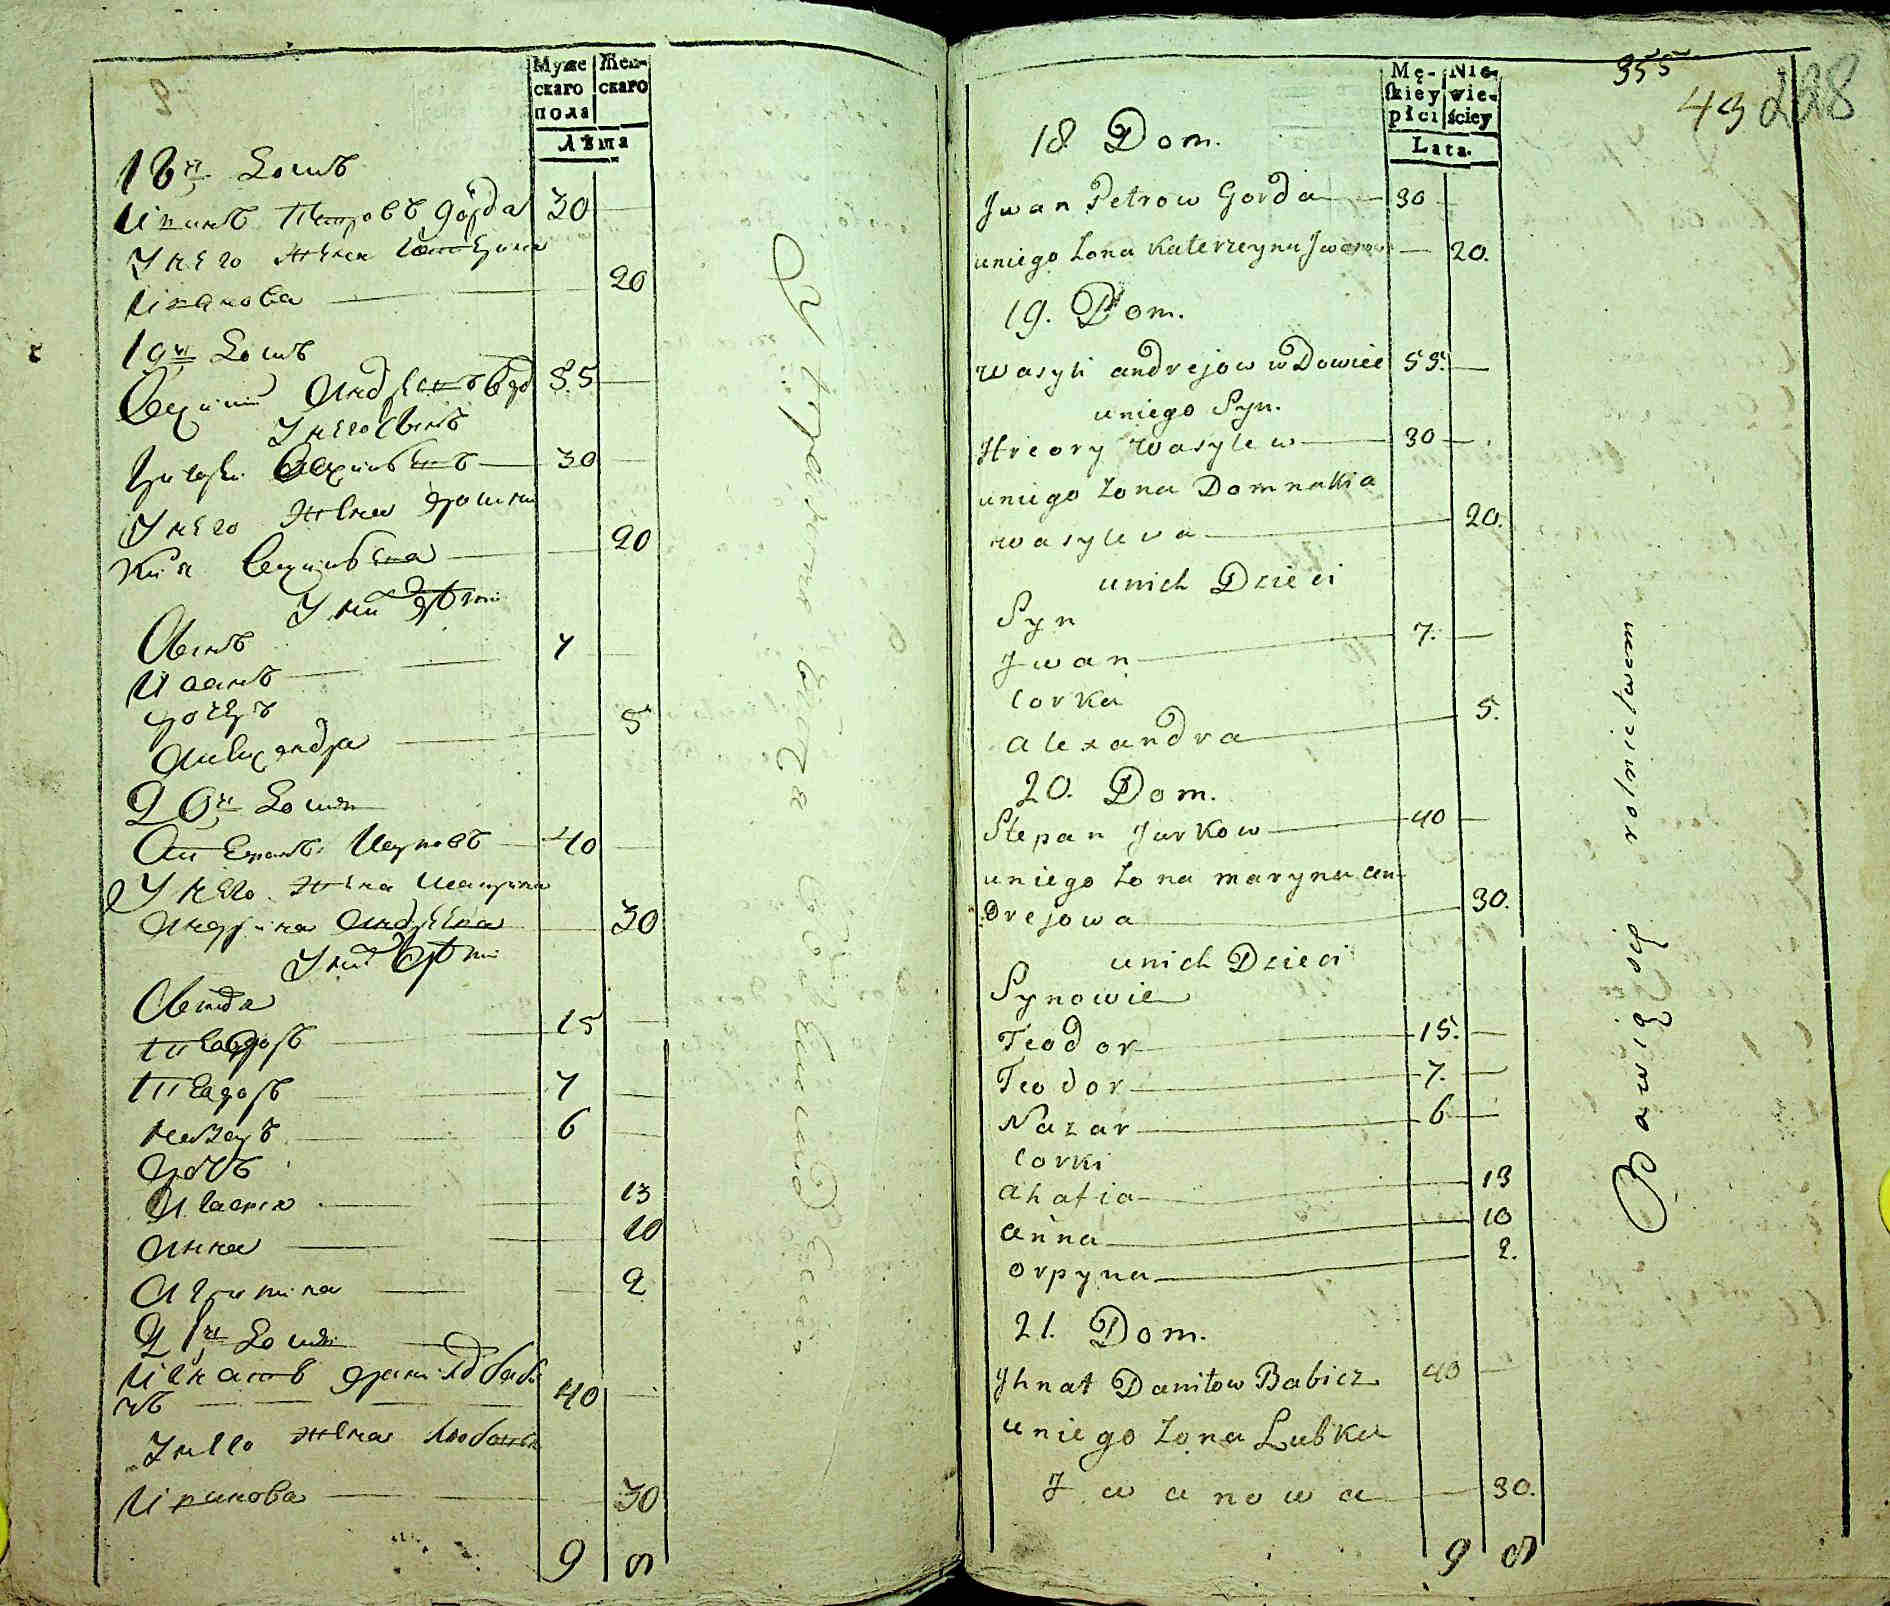 Муже
скаго
пола
Жен-
скаго
Лѣта
18й Домъ
Иванъ Петровъ Горда 30
У него жена Катерина
Иванова 20
19й Домъ
Василий Андреевъ вдо 55
У него Сынъ
Григорий Васильевъ 30
У него жена Домни
кия Васильева 20
У нихъ дѣти
Сынъ
Иванъ 7
дочерь
Александра 5
20й Домъ
Степанъ Юрковъ 40
У него жена Марина
Андреева 30
У нихъ дѣти
Сыновя
Теодоръ 15
Теодоръ 7
Назаръ 6
Дочь
Агафия 13
Анна 10
2
21й Домъ
Игнатъ Даниловъ Баби
чъ 40
У него жена Любовь
Иванова 30
9 8
355
43 228
Mę-
skiey
płci
Nie-
wie-
ściey
Lata.
18 Dom.
Jwan Petrow Gorda 30
uniego żona Katerzeyna Jwanow 20.
19. Dom.
Wasyli andrejow wDowiec 55.
uniego Syn.
Hreory Wasylew 30
uniego żona Domnakia
wasylewa 20.
unich Dzieci
Syn
Jwan 7.
Corka
Alexandra 5.
20. Dom.
Stepan Jurkow 40
uniego żona maryna an-
Drejowa 30.
unich Dzieci
Synowie
Teodor 15.
Teodor 7.
Nazar 6
Corki
ahafia 13
anna 10
orpyna 2.
21. Dom.
Jhnat Daniłow Babicz 40
uniego żona Lubka
Jwanowa 30.
9 8
Bawią się rolnictwem